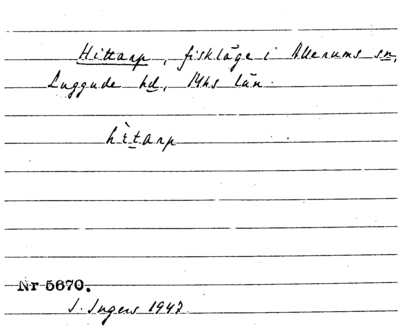 Hittarp, fiskläge i Allerums sn,
Luggude hd, Mhs län.
hìtarp
Nr 5670.
I. Ingers 1947